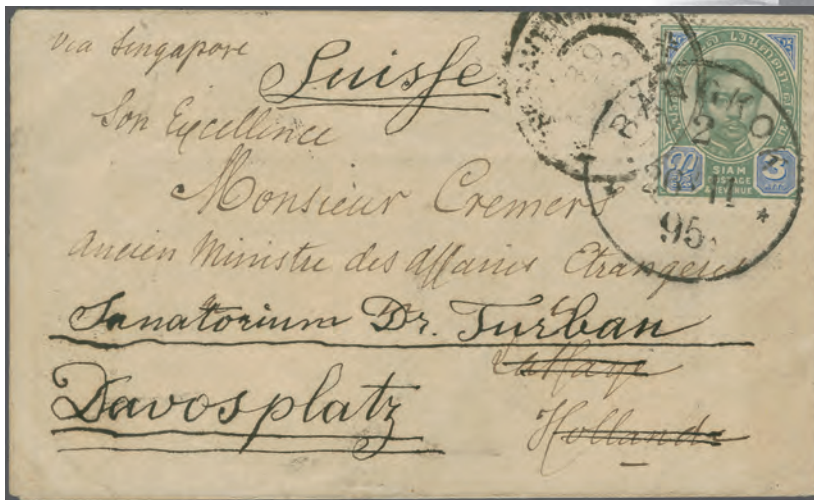 Via Singapore
Suisse
Son Excellence
Monsieur Cremers
Ancien Ministre des Affaires Etrangères
Sanatorium Dr. Turban
La Haye
Davosplatz
Hollande
BANGKOK
2
11
95
SIAM
POSTAGE
& REVENUE